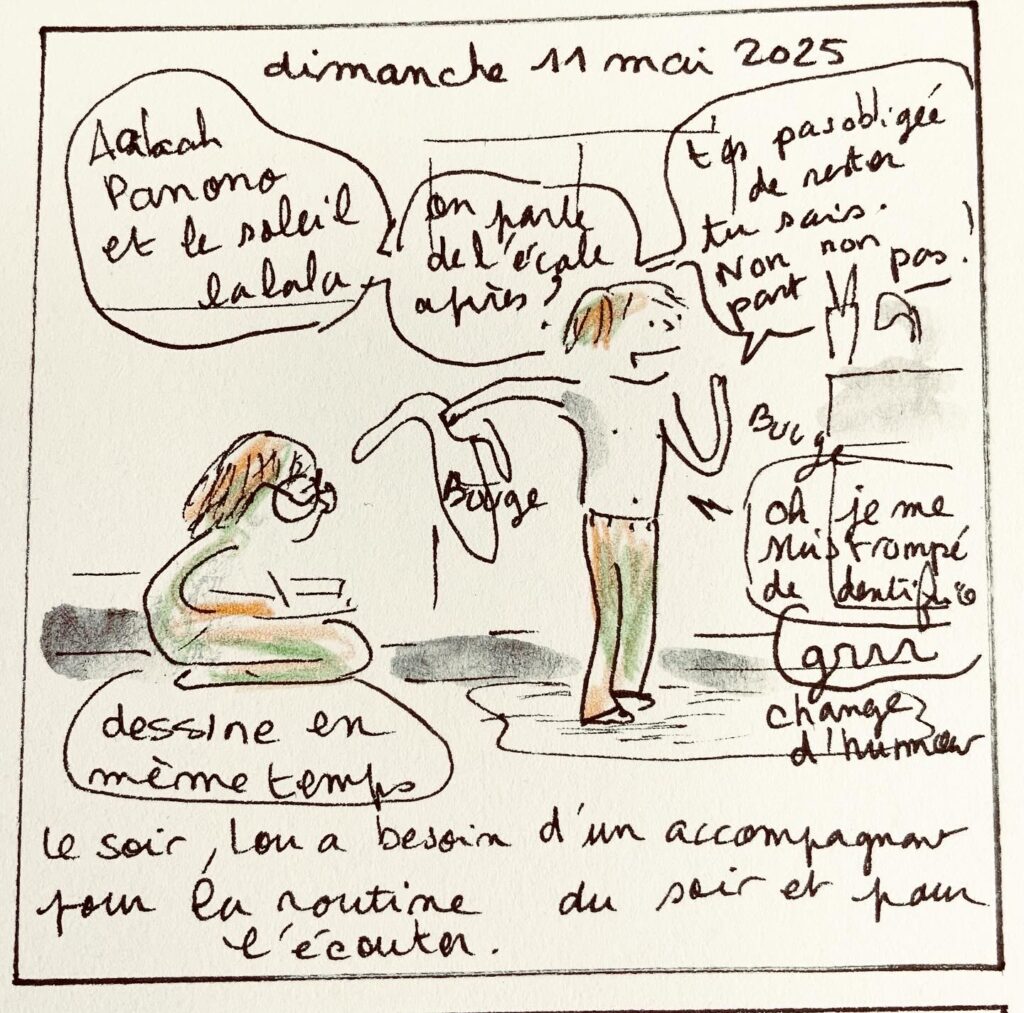 dimanche 11 mai 2025
Aabaah
Panono
et le soleil
lalala
on parle
de l'école
après ?
t'es pas obligée
de rester
tu sais.
Non non
part pas !
Bouge
Bouge
oh je me
suis trompé
de dentifrice
grrr
change
d'humeur
dessine en
même temps
Le soir, Lou a besoin d'un accompagnant
pour la routine du soir et pour
l'écouter.